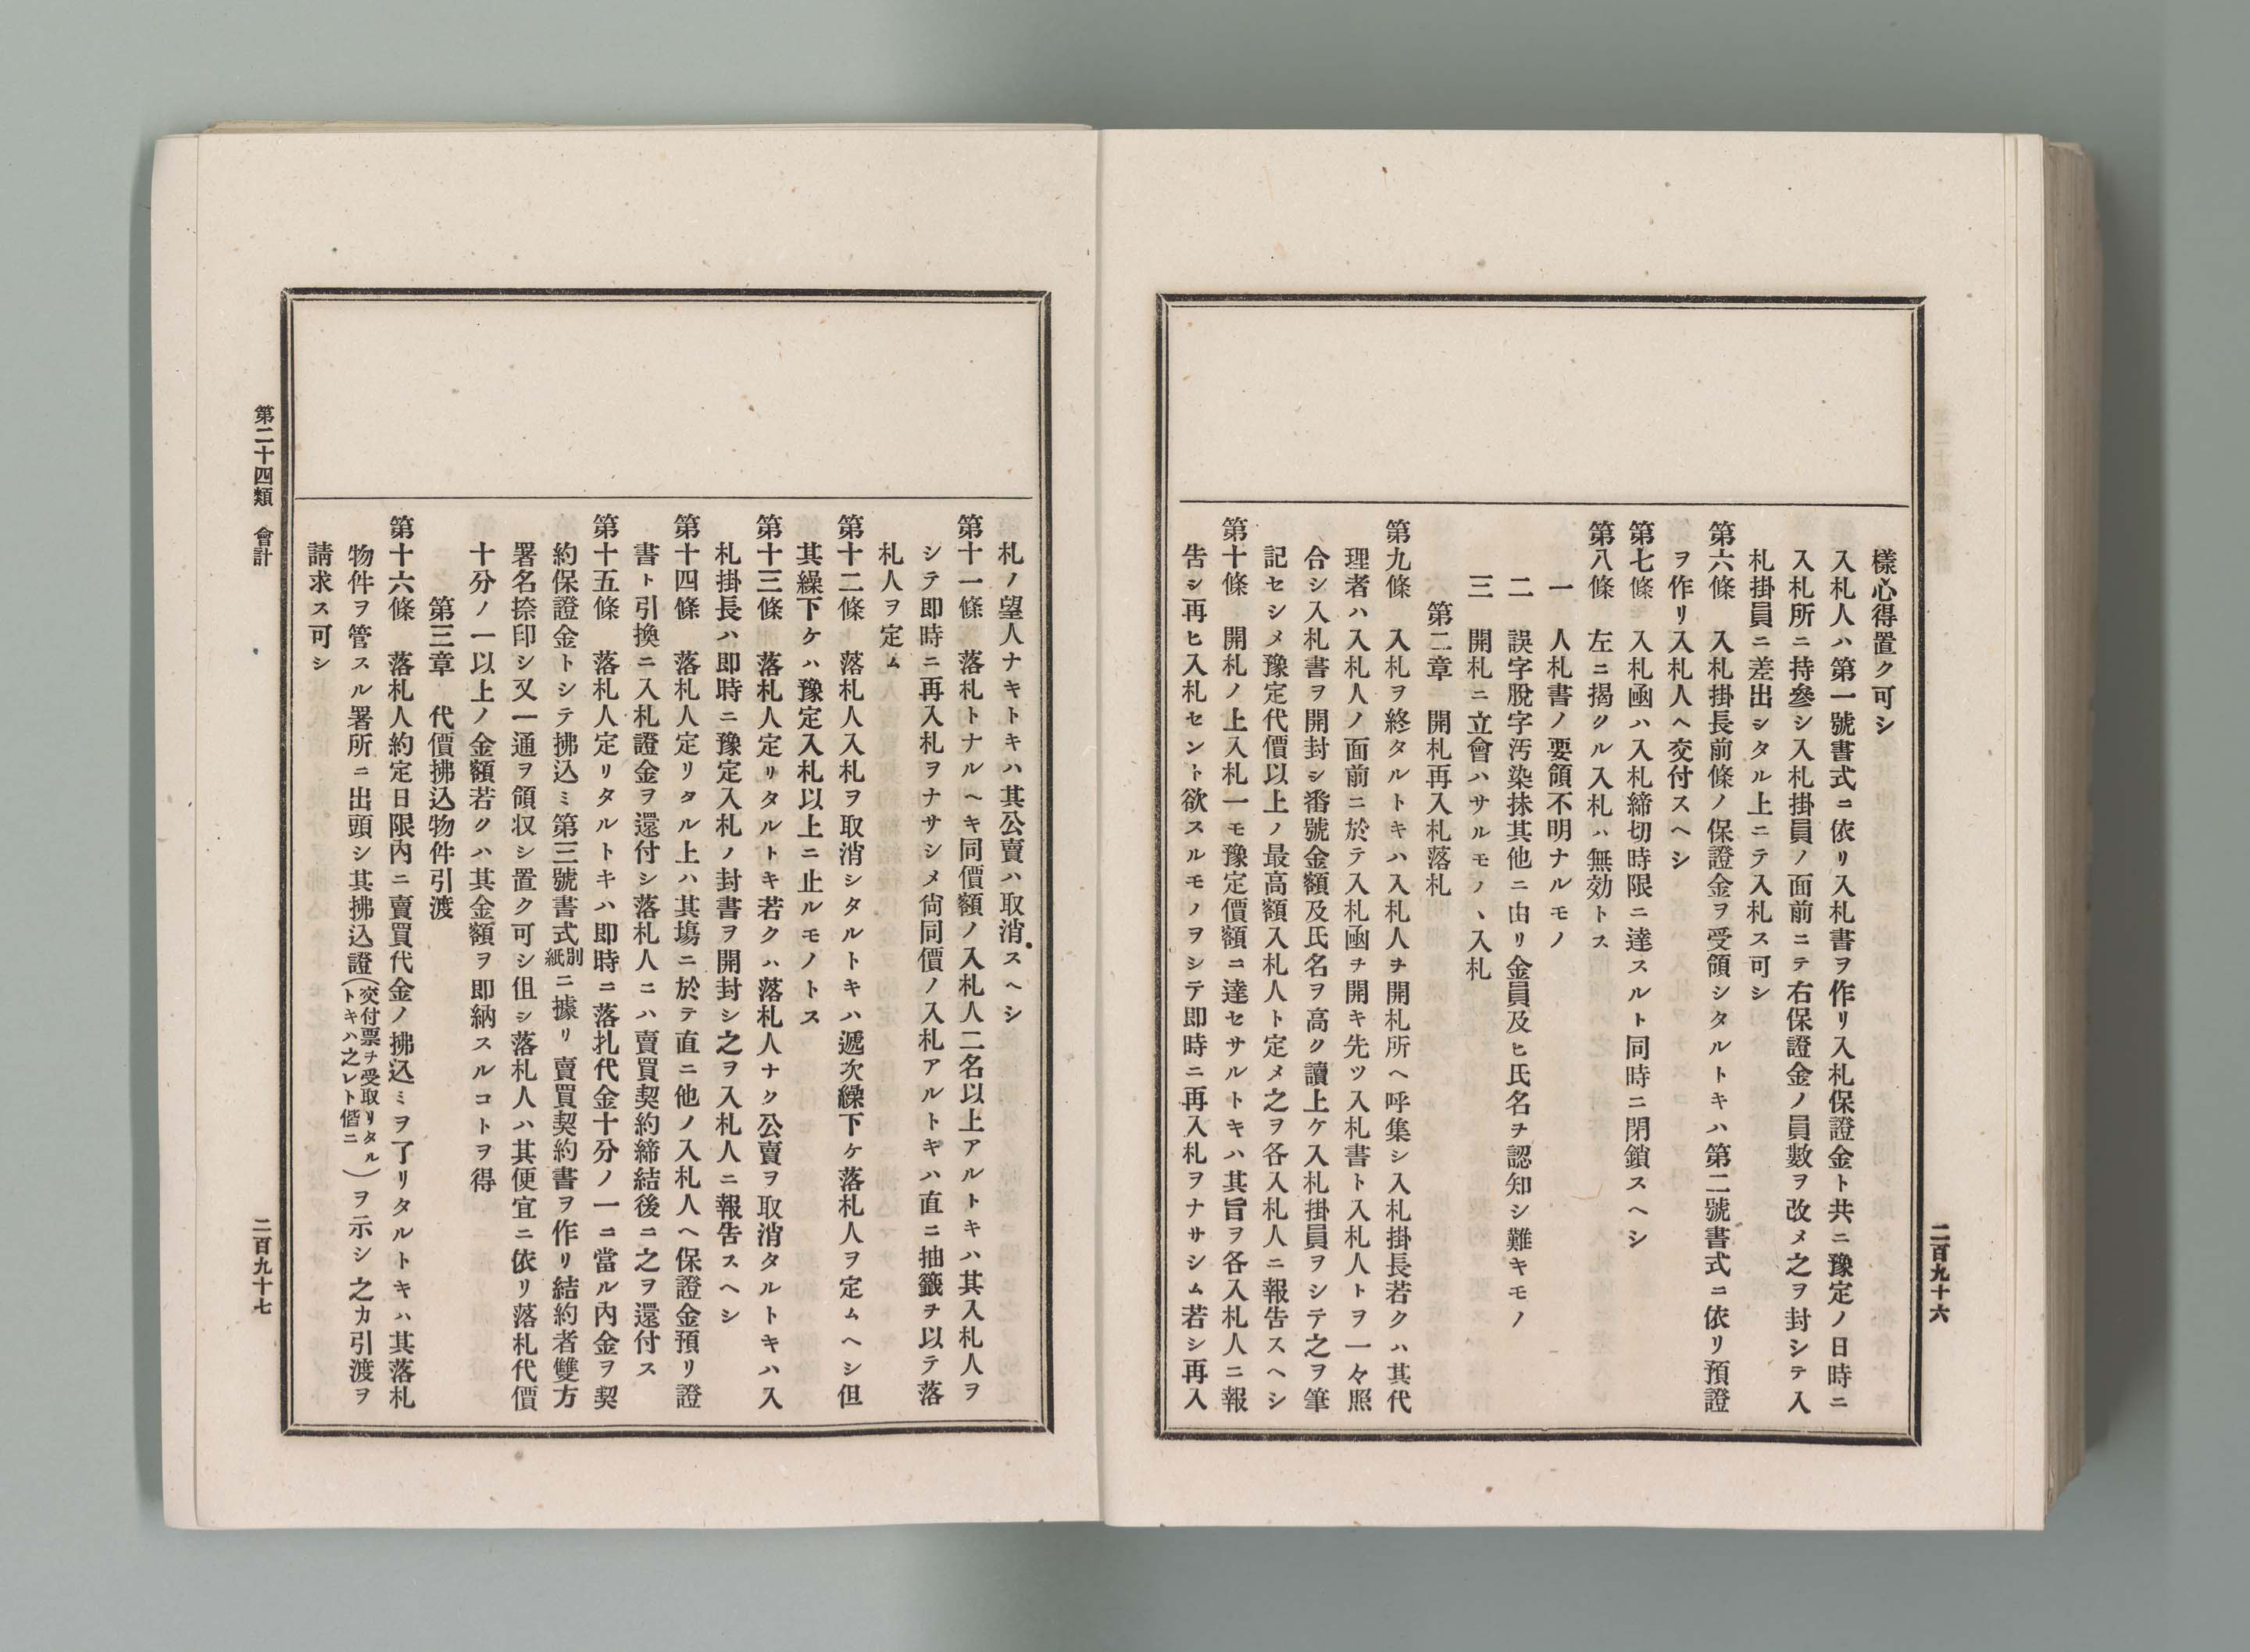 樣心得置ク可シ
入札人ハ第一號書式ニ依リ入札書ヲ作リ入札保證金ト共ニ豫定ノ日時ニ
入札所ニ持參シ入札掛員ノ面前ニテ右保證金ノ員數ヲ改メ之ヲ封シテ入
札掛員ニ差出シタル上ニテ入札ス可シ
第六條　入札掛長前條ノ保證金ヲ受領シタルトキハ第二號書式ニ依リ預證
ヲ作リ入札人ヘ交付スヘシ
第七條　入札凾ハ入札締切時限ニ達スルト同時ニ閉鎖スヘシ
第八條　左ニ揭クル入札ハ無効トス
一　入札書ノ要領不明ナルモノ
二　誤字脫字汚染抹其他ニ由リ金員及ヒ氏名ヲ認知シ難キモノ
三　開札ニ立會ハサルモノヽ入札
第二章　開札再入札落札
第九條　入札ヲ終タルトキハ入札人ヲ開札所ヘ呼集シ入札掛長若クハ其代
理者ハ入札人ノ面前ニ於テ入札凾ヲ開キ先ツ入札書ト入札人トヲ一々照
合シ入札書ヲ開封シ番號金額及氏名ヲ高ク讀上ケ入札掛員ヲシテ之ヲ筆
記セシメ豫定代價以上ノ最高額入札人ト定メ之ヲ各入札人ニ報告スヘシ
第十條　開札ノ上入札一モ豫定價額ニ達セサルトキハ其旨ヲ各入札人ニ報
告シ再ヒ入札セント欲スルモノヲシテ即時ニ再入札ヲナサシム若シ再入
二百九十六
札ノ望人ナキトキハ其公賣ハ取消スヘシ
第十一條　落札トナルヘキ同價額ノ入札人二名以上アルトキハ其入札人ヲ
シテ即時ニ再入札ヲナサシメ尙同價ノ入札アルトキハ直ニ抽籤ヲ以テ落
札人ヲ定ム
第十二條　落札人入札ヲ取消シタルトキハ遞次繰下ケ落札人ヲ定ムヘシ但
其繰下ケハ豫定入札以上ニ止ルモノトス
第十三條　落札人定リタルトキ若クハ落札人ナク公賣ヲ取消タルトキハ入
札掛長ハ即時ニ豫定入札ノ封書ヲ開封シ之ヲ入札人ニ報告スヘシ
第十四條　落札人定リタル上ハ其塲ニ於テ直ニ他ノ入札人ヘ保證金預リ證
書ト引換ニ入札證金ヲ還付シ落札人ニハ賣買契約締結後ニ之ヲ還付ス
第十五條　落札人定リタルトキハ即時ニ落札代金十分ノ一ニ當ル內金ヲ契
約保證金トシテ拂込ミ第三號書式別紙ニ據リ賣買契約書ヲ作リ結約者雙方
署名捺印シ又一通ヲ領収シ置ク可シ伹シ落札人ハ其便宜ニ依リ落札代價
十分ノ一以上ノ金額若クハ其金額ヲ即納スルコトヲ得
第三章　代價拂込物件引渡
第十六條　落札人約定日限內ニ賣買代金ノ拂込ミヲ了リタルトキハ其落札
物件ヲ管スル署所ニ出頭シ其拂込證（交付票ヲ受取リタルトキハ之レト偕ニ）ヲ示シ之カ引渡ヲ
請求ス可シ
第二十四類　會計
二百九十七